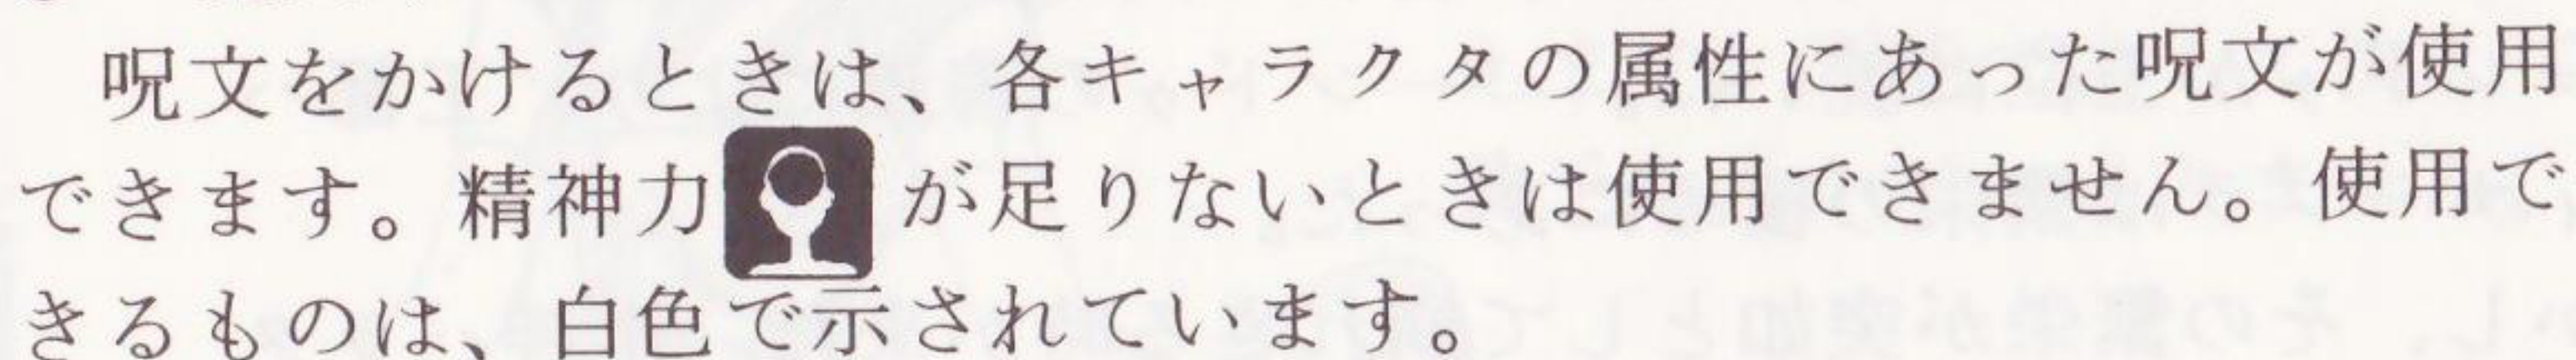 呪文をかけるときは、各キャラクタの属性にあった呪文が使用
できます。精神力が足りないときは使用できません。使用で
きるものは、白色で示されています。